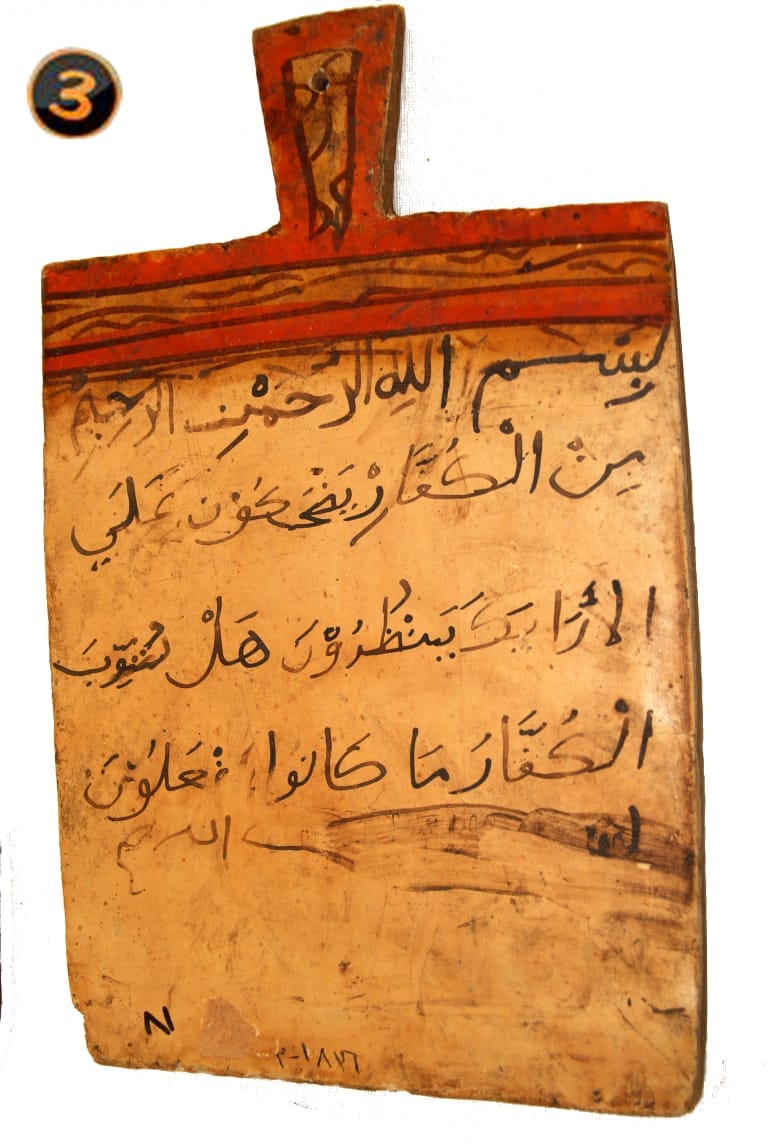 3
بِسْمِ اللهِ الرَّحْمٰنِ الرَّحِيْمِ
مِنْ الْكُفَّارْ يَضْحَكُوْنَ عَلَي
الأرَايَكَ يَنْظُرُوْنَ هَلْ ثُوِّبَ
الْكُفَّارَ مَا كَانوا فعَلُوْنَ
N